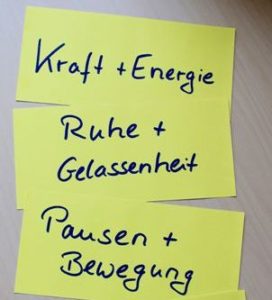 Kraft + Energie
Ruhe +
Gelassenheit
Pausen +
Bewegung